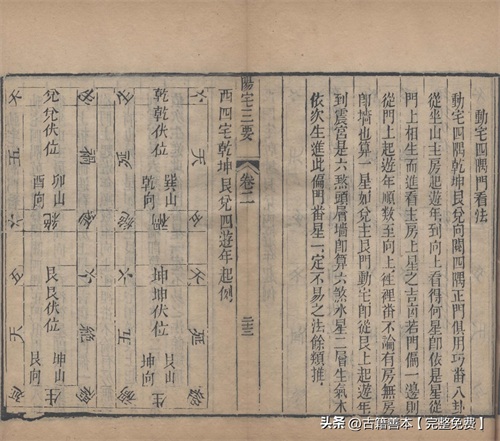 動宅四隅門看法
動宅四隅乾坤艮兌向開四隅正門俱用巧番八卦
從坐山主房起遊年到向上看得何星卽依是星從
門上相生而進看主房上星之吉凶若門偏一邊則
從門上起遊年順數至向上往裡番不論有房無房
卽墻也算一星如兌主艮門動宅卽從艮上起遊年
到震宮是六煞頭層墻卽算六煞水星二層生氣木
依次生進此偏門番星一定不易之法餘類推
陽宅三要
卷二
二三
西四宅乾坤艮兌四遊年起例
六
天
乾乾伏位
巽山
乾向
禍
延
禍
絕
兌兌伏位
卯山
酉向
五
六
天
延
坤坤伏位
艮山
坤向
絕
六
絕
禍
五
禍
艮艮伏位
坤山
艮向
生
五
天
延
头条 @古籍善本【完整免费】